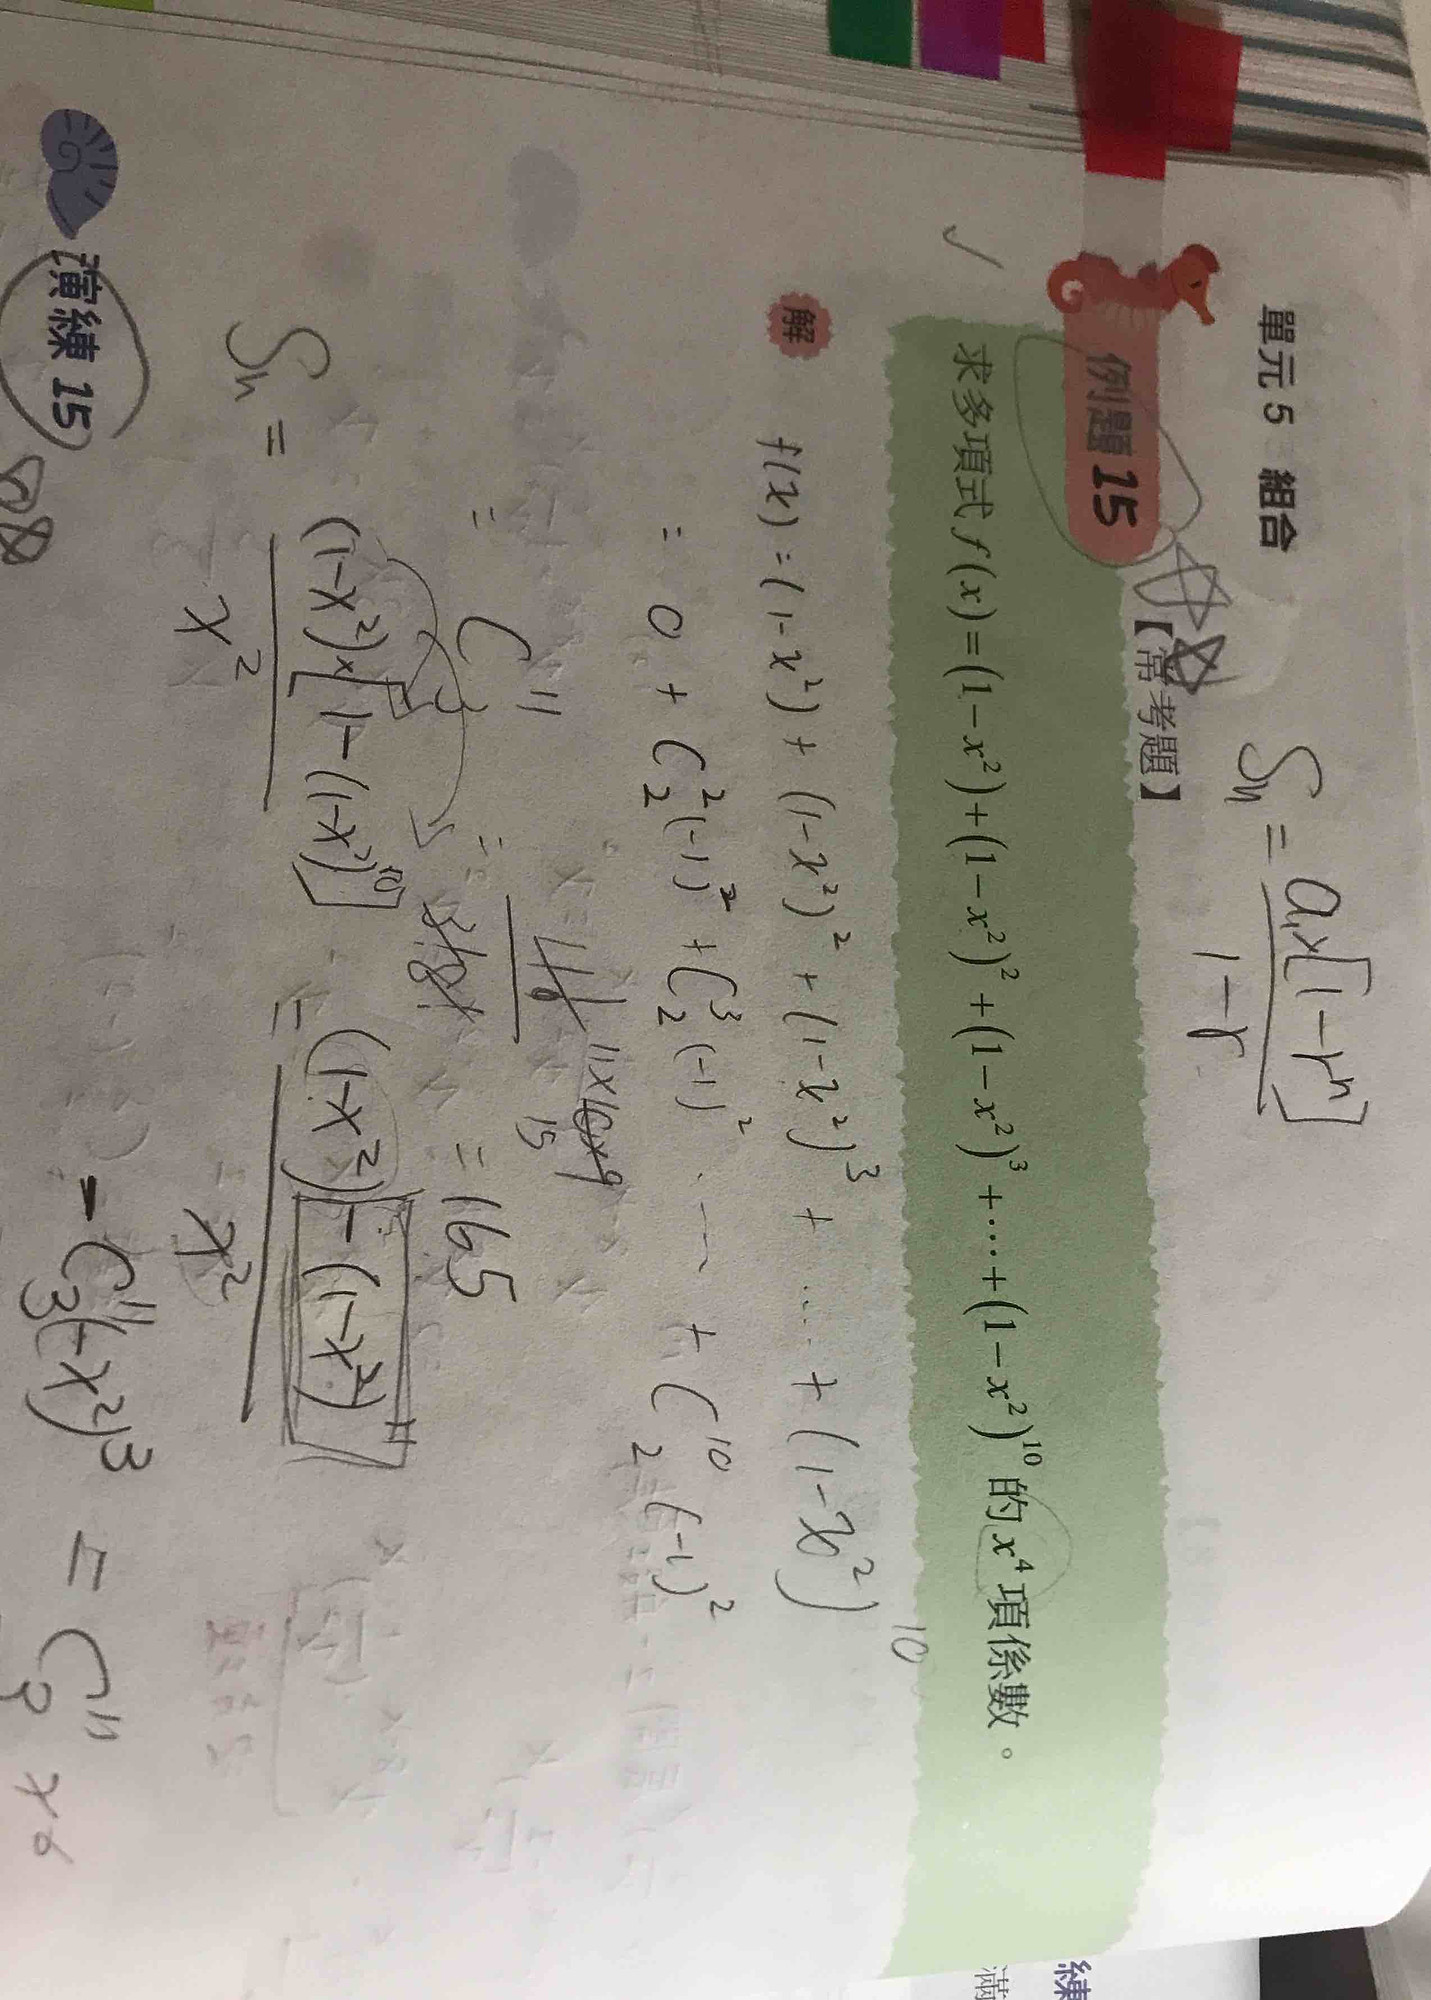 單元 5 組合
Sn = a₁×[1-rⁿ] / 1-r
例題 15
【常考題】
求多項式 f(x)=(1-x²)+(1-x²)²+(1-x²)³+⋯+(1-x²)¹⁰ 的 x⁴ 項係數。
解
f(x) = (1-x²) + (1-x²)² + (1-x²)³ + .... + (1-x²)¹⁰
= 0 + C²₂(-1)² + C³₂(-1)² ... + C¹⁰₂(-1)²
11×10×9
15
= C¹¹₃ = = 165
Sn = (1-x²)×[1-(1-x²)¹⁰] / x² = (1-x²)-(1-x²)¹¹ / x²
-C¹¹₃(-x²)³ = C¹¹₃ x⁶
演練 15
練
滿